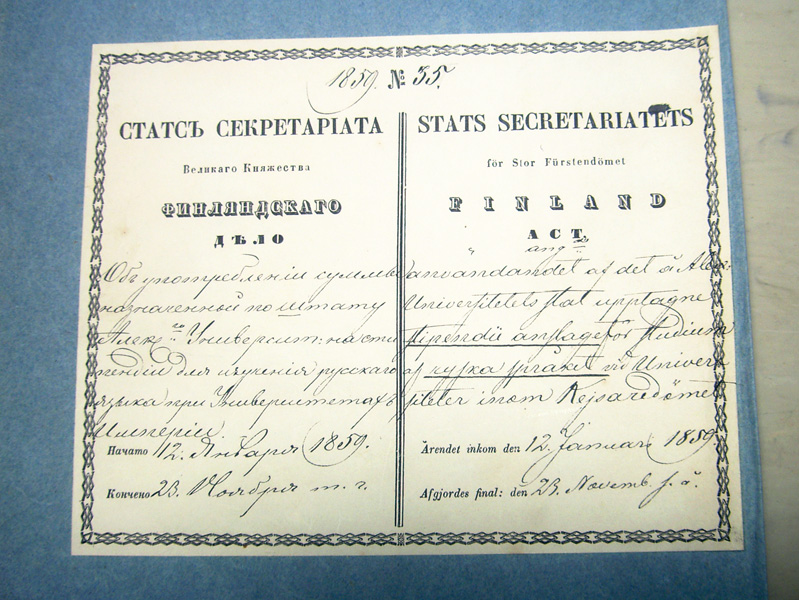 1859. № 35.
СТАТСЪ СЕКРЕТАРІАТА
Великаго Княжества
ФИНЛЯНДСКАГО
ДѢЛО
Объ употребленіи суммы
назначенной по штату
Алекс: Университ: на сти
пендіи для изученія русскаго
языка при Университетахъ
Имперіи.
Начато 12. Января 1859.
Кончено 23. Ноября т. г.
STATS SECRETARIATETS
för Stor Fürstendömet
FINLAND
ACT,
ang:de
användandet af det å Alex:
Universitetets stat upptagne
stipendii anslaget för studium
af ryska språket vid Univers
siteter inom Kejsaredömet
Ärendet inkom den 12. Januari 1859.
Afgjordes final: den 23. Novemb. s. å.